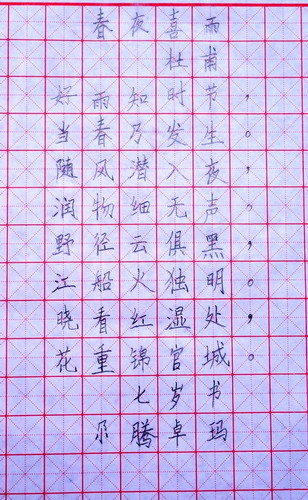 春夜喜雨
杜甫
好雨知时节，
当春乃发生。
随风潜入夜，
润物细无声。
野径云俱黑，
江船火独明。
晓看红湿处，
花重锦宫城。
七岁书
尕腾卓玛